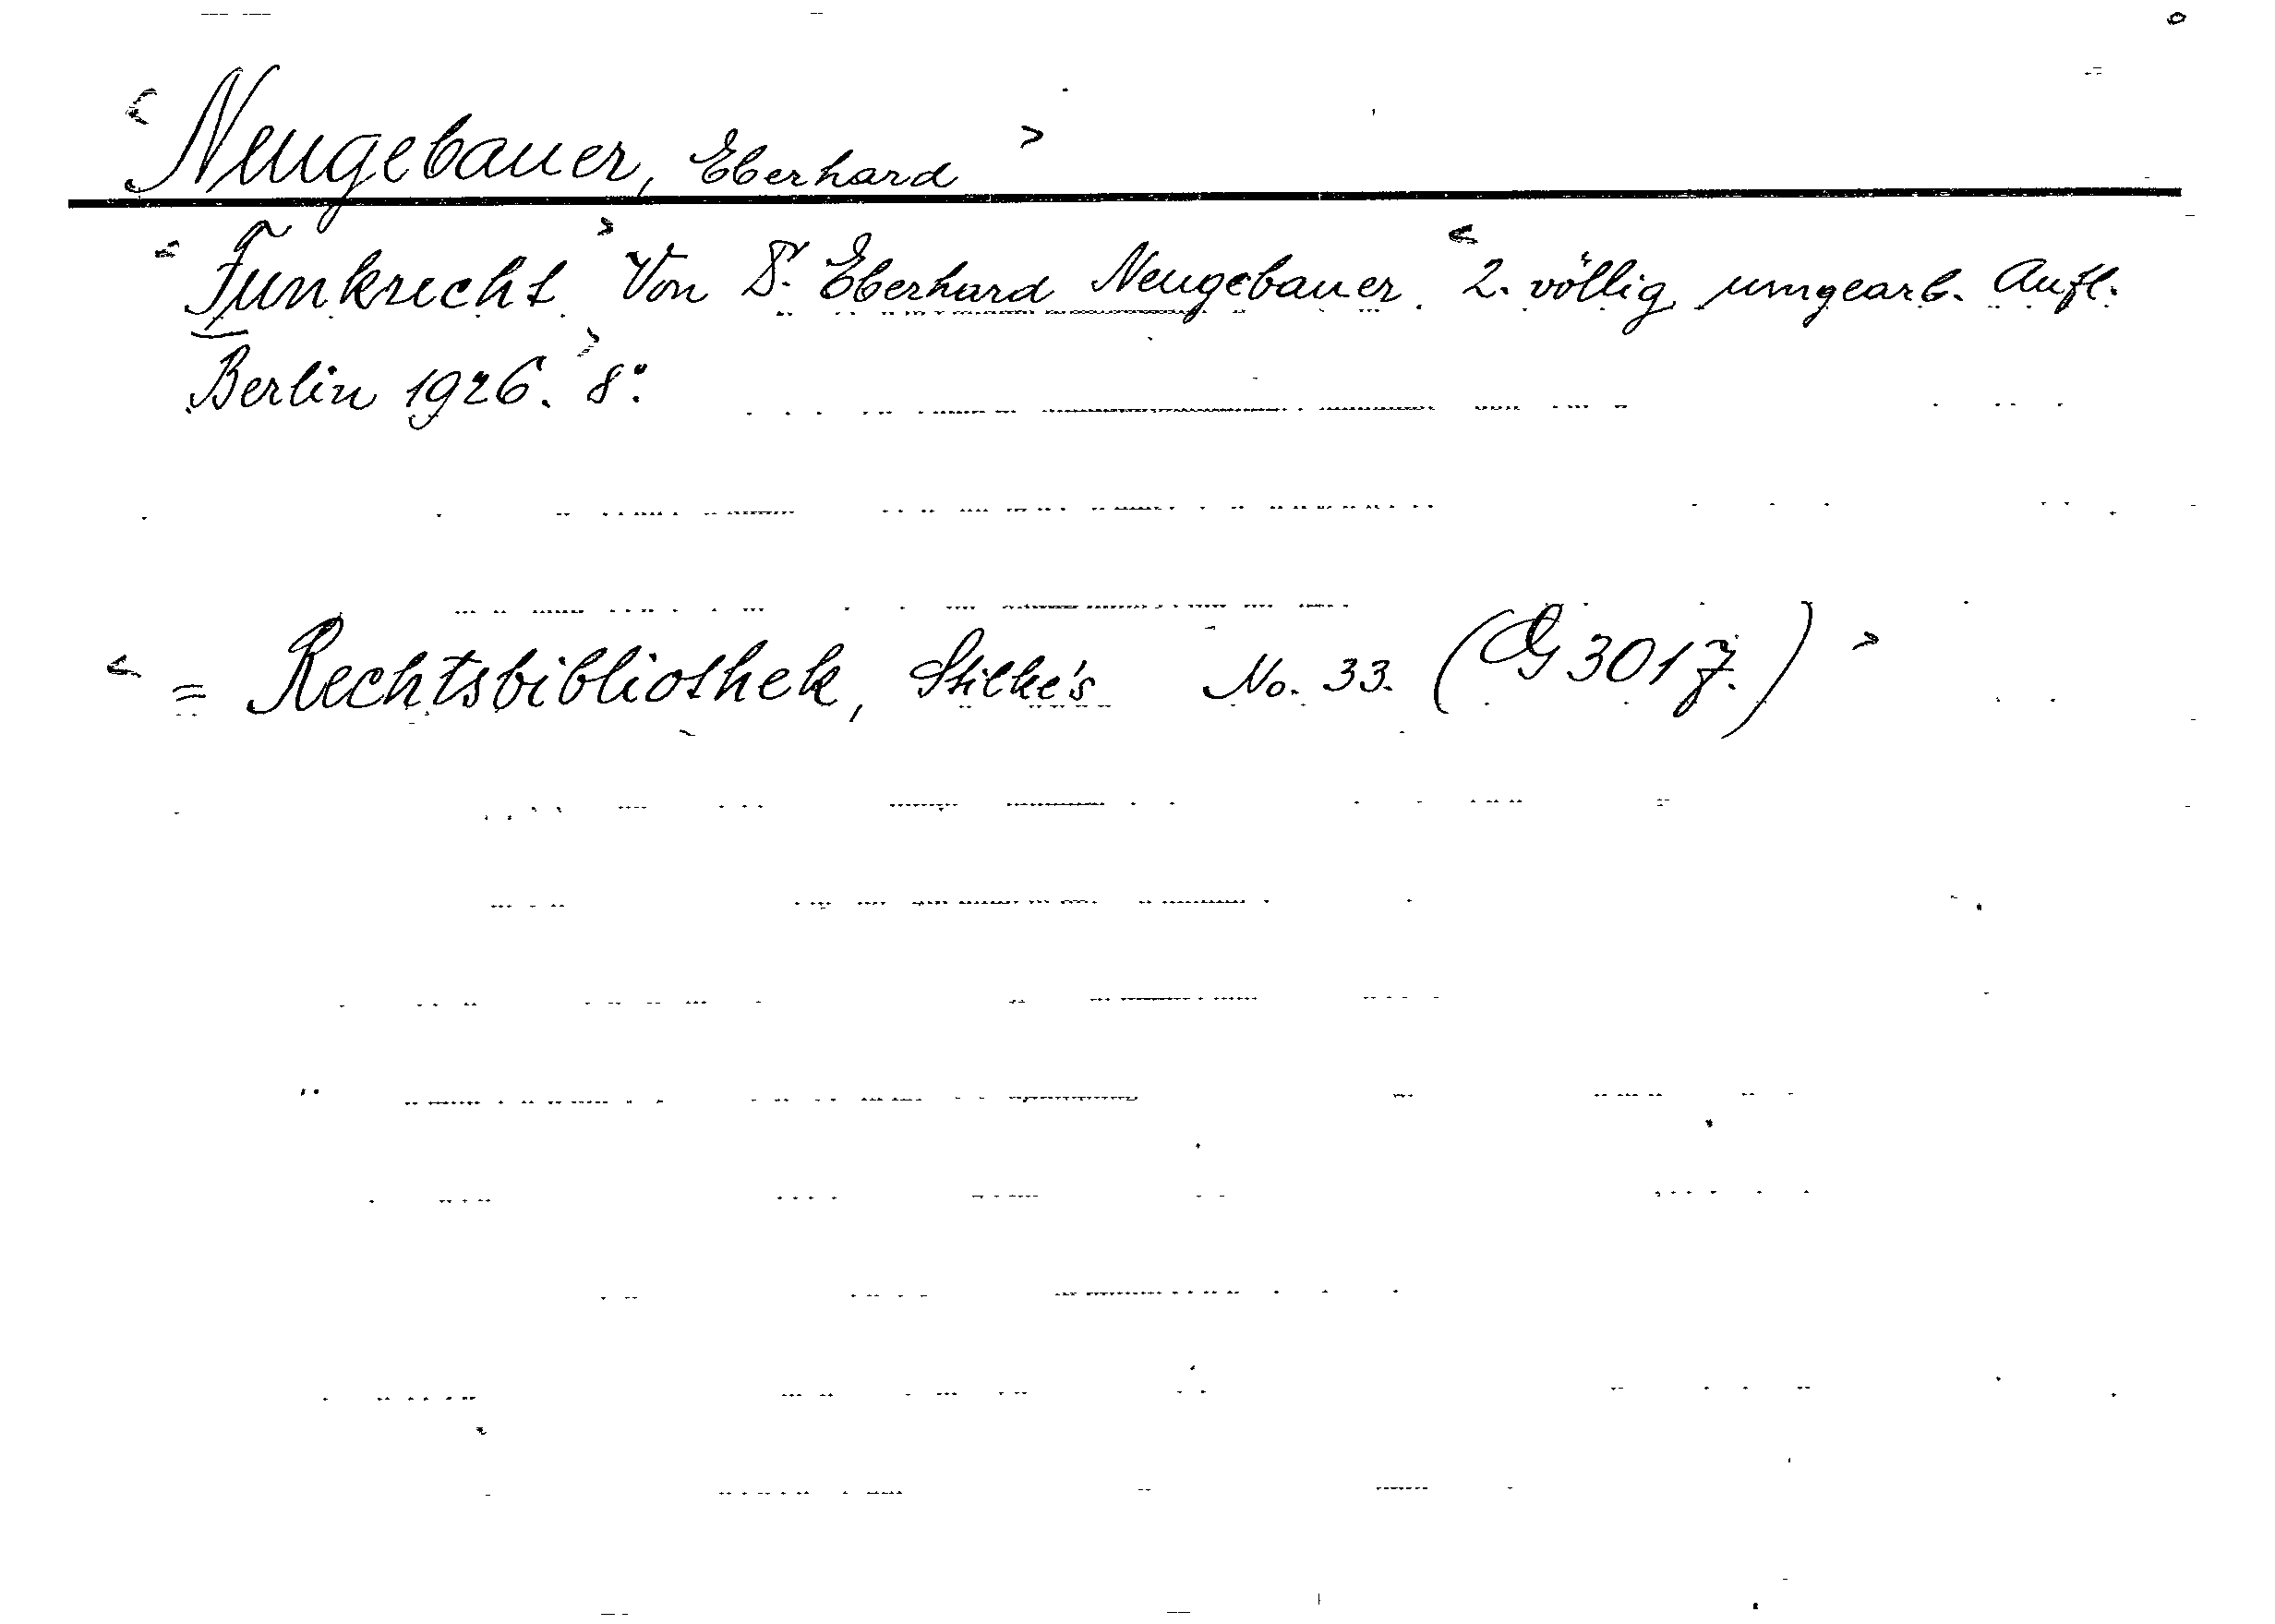 < Neugebauer, Eberhard >
< Funkrecht > Von Dr. Eberhard Neugebauer. < 2. völlig umgearb. Aufl.
Berlin 1926. > 8°.
< = Rechtsbibliothek, Stilke's No. 33. (G 301 7.) >